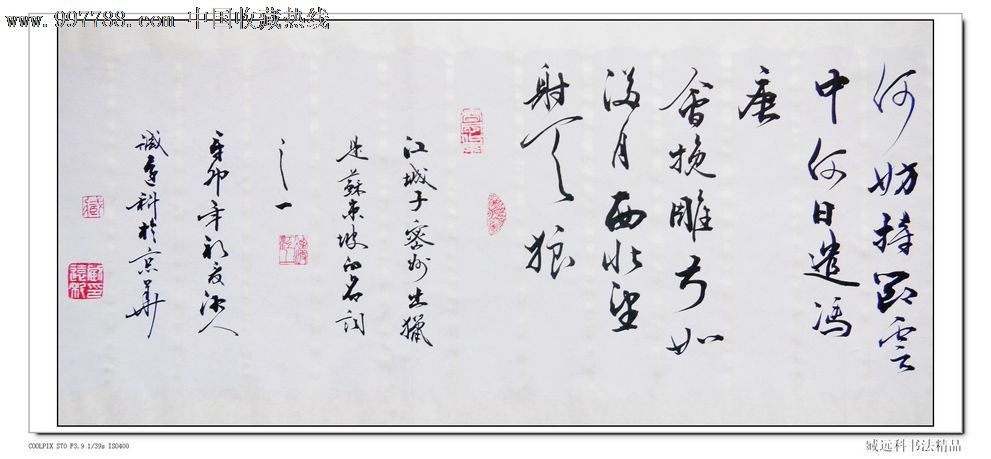 www.997788.com 中国收藏热线
何妨持節雲
中何日遣馮
唐
會挽雕弓如
滿月西北望
射天狼
江城子密州出獵
是蘇東坡的名詞
之一
辛卯年初夏沛人
臧遠科於京華
COOLPIX S70 F3.9 1/39s ISO400
臧远科书法精品